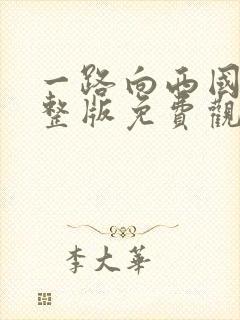 一路向西國
整版免費觀
李大華